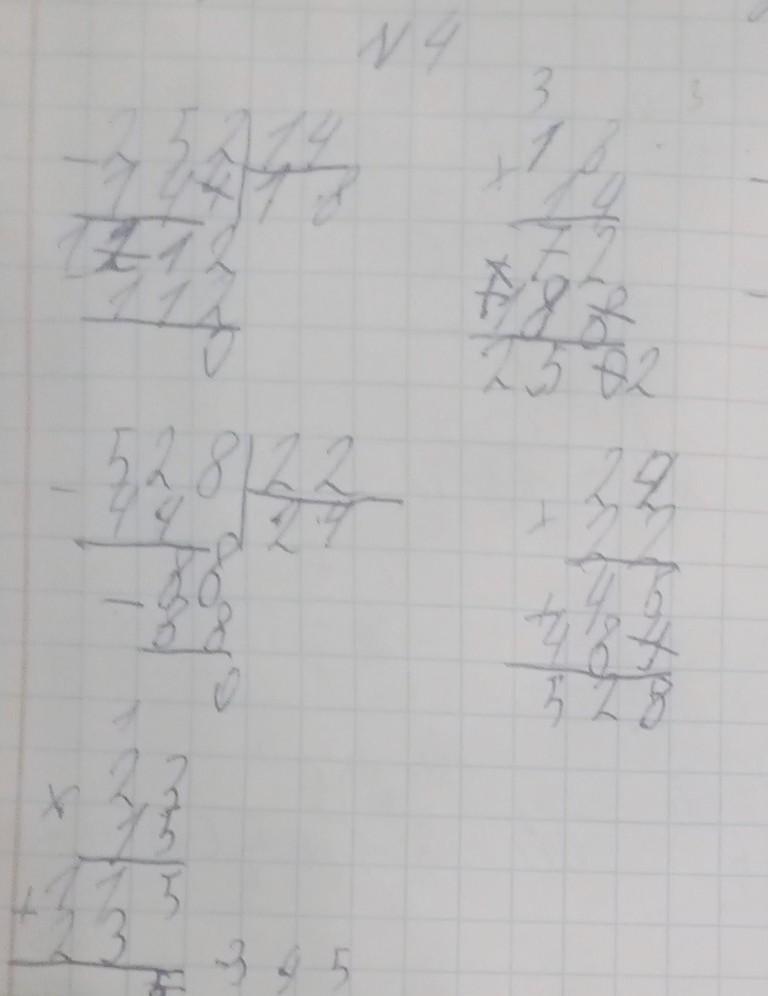 N 4
3
252 14
- 144 18
1212
112
0
18
× 14
72
+ 18
2502
528 22
- 44 24
88
- 88
0
24
× 22
48
+ 484
528
1
23
× 15
115
+ 23
5 3 9 5